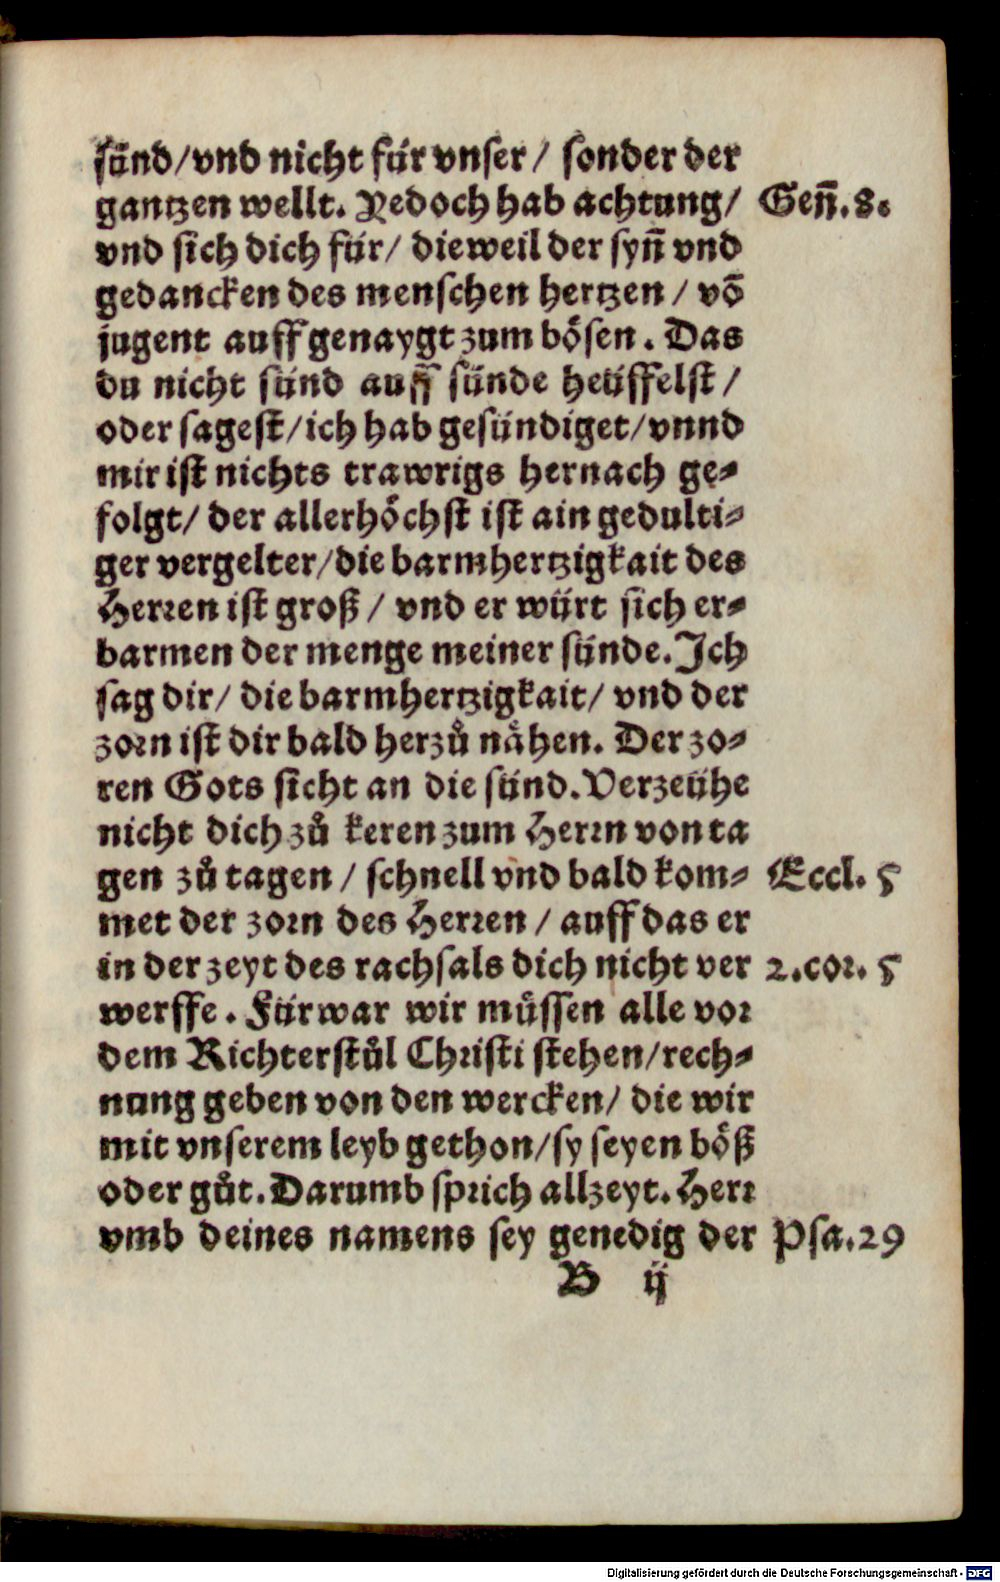 sünd/vnd nicht für vnser/ sonder der
gantzen wellt. Yedoch hab achtung/ Gen̄.8.
vnd sich dich für/ dieweil der syn̄ vnd
gedancken des menschen hertzen/ vō
jugent auff genaygt zum bösen. Das
du nicht sünd auff sünde heüffelst/
oder sagest/ich hab gesündiget/vnnd
mir ist nichts trawrigs hernach ge⸗
folgt/ der allerhöchst ist ain gedulti⸗
ger vergelter/die barmhertzigkait des
Herren ist groß/ vnd er würt sich er⸗
barmen der menge meiner sünde. Ich
sag dir/ die barmhertzigkait/ vnd der
zorn ist dir bald herzů nähen. Der zo⸗
ren Gots sicht an die sünd. Verzeühe
nicht dich zů keren zum Herrn von ta
gen zů tagen/ schnell vnd bald kom⸗ Eccl. 5
met der zorn des Herren/ auff das er
in der zeyt des rachsals dich nicht ver 2.cor. 5
werffe. Fürwar wir müssen alle vor
dem Richterstůl Christi stehen/rech⸗
nung geben von den wercken/ die wir
mit vnserem leyb gethon/sy seyen böß
oder gůt. Darumb sprich allzeyt. Herr
vmb deines namens sey genedig der Psa.29
B ij
Digitalisierung gefördert durch die Deutsche Forschungsgemeinschaft - DFG